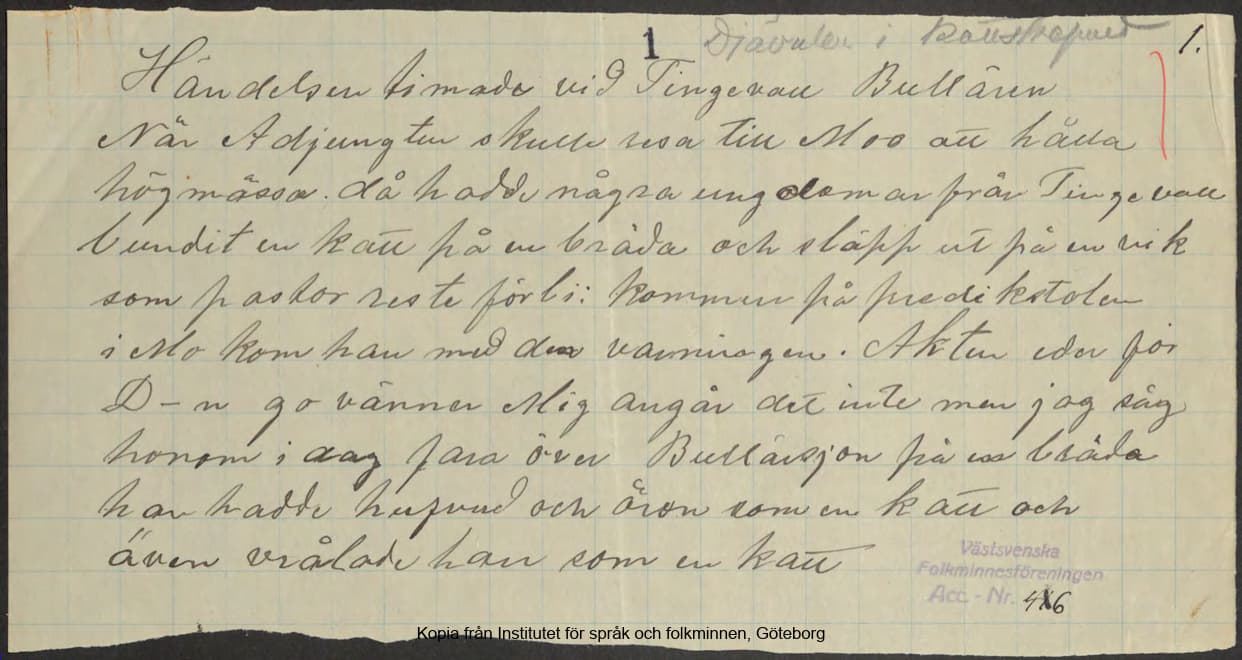 1 Djävulen i kattskepnad 1.
Händelsen timade vid Tingevall Bullaren
När Adjungten skulle resa till Moo att hålla
högmässa. då hadde några ungdomar från Tingevall
bundit en katt på en bräda och släpp ut på en vik
som pastor reste förbi: kommen på predikstolen
i Mo kom han med den varningen. Akten eder för
D-n go vänner Mig angår det inte men jag såg
honom i dag fara över Bullarsjon på en bräda
han hadde hufvud och öron som en katt och
även vrålade han som en katt
Västsvenska
Folkminnesföreningen
Acc.-Nr. 46
Kopia från Institutet för språk och folkminnen, Göteborg